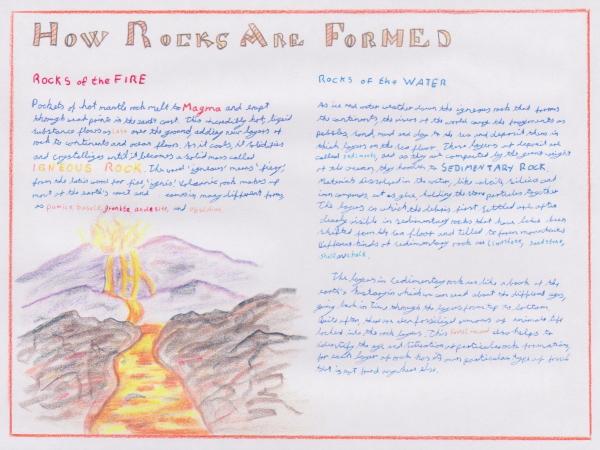 How Rocks Are Formed
Rocks of the FIRE
Pockets of hot mantle rock melt to Magma and erupt
through weak points in the earth's crust. This incredibly hot, liquid
substance flows as Lava over the ground, adding new layers of
rock to continents and ocean floors. As it cools, it solidifies
and crystallizes until it becomes a solid mass called
IGNEOUS ROCK. The word 'igneous' means 'fiery',
from the latin word for fire, 'ignis'. Volcanic rock makes up
most of the earth's crust and comes in many different forms
as pumice, basalt, granite, andesite, and obsidian.
Rocks of the WATER
As ice and water weather down the igneous rock that forms
the continents, the rivers of the world carry the fragments as
pebbles, sand, mud and clay to the sea and deposit them in
thick layers on the sea floor. These layers of deposit are
called sediments, and as they are compacted by the great weight
of the ocean, they harden to SEDIMENTARY ROCK.
Materials dissolved in the water, like calcite, silica and
iron compounds, act as glue, holding the stone particles together.
The layers in which the debris first settled are often
clearly visible in sedimentary rocks that have been
shifted from the sea floor and tilted to form mountains.
Different kinds of sedimentary rock are limestone, sandstone,
shale
The layers in sedimentary rock are like a book of the
earth's history in which we can read about the different ages,
going back in time through the layers from top to bottom.
Quite often, there are even fossilized remains of animal life
locked into the rock layers. This fossil record also helps to
identify the age and of particular rock formations,
for each layer of rock has its own particular type of fossil
that is not found anywhere else.